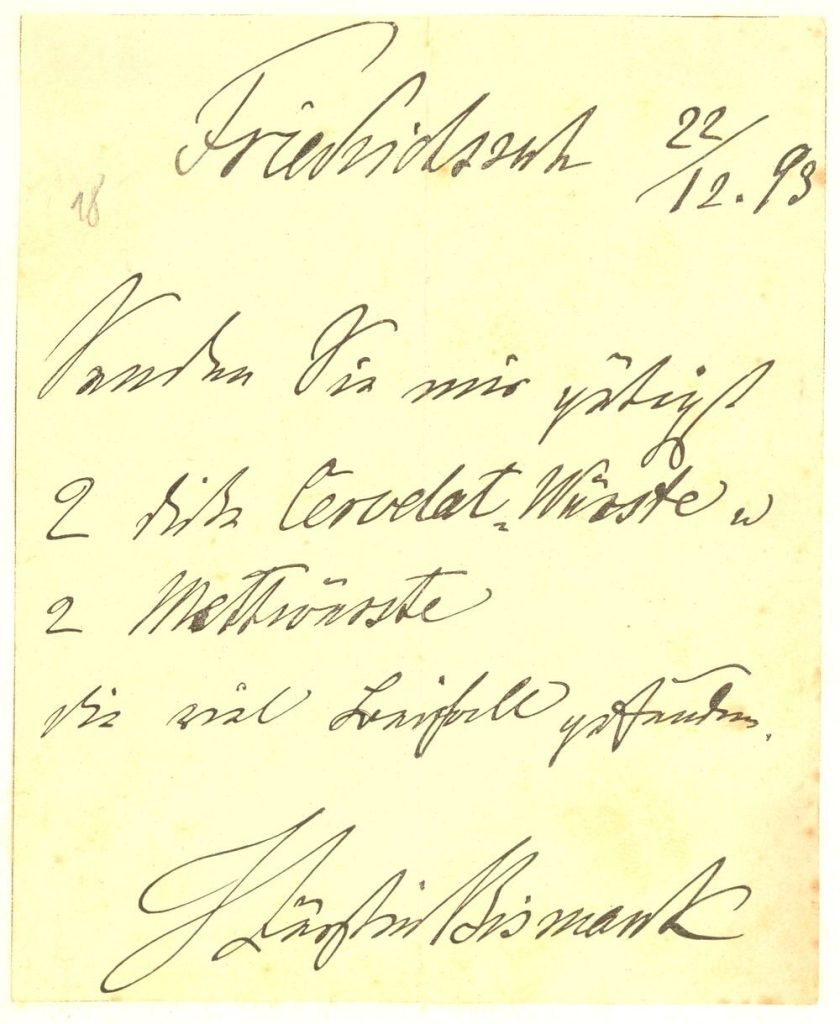 Friedrichsruh 22/12. 93
18
Senden Sie mir gütigst
2 dicke Cervelat-Würste u
2 Mettwürste
die viel Beifall gefunden.
Fürstin Bismarck